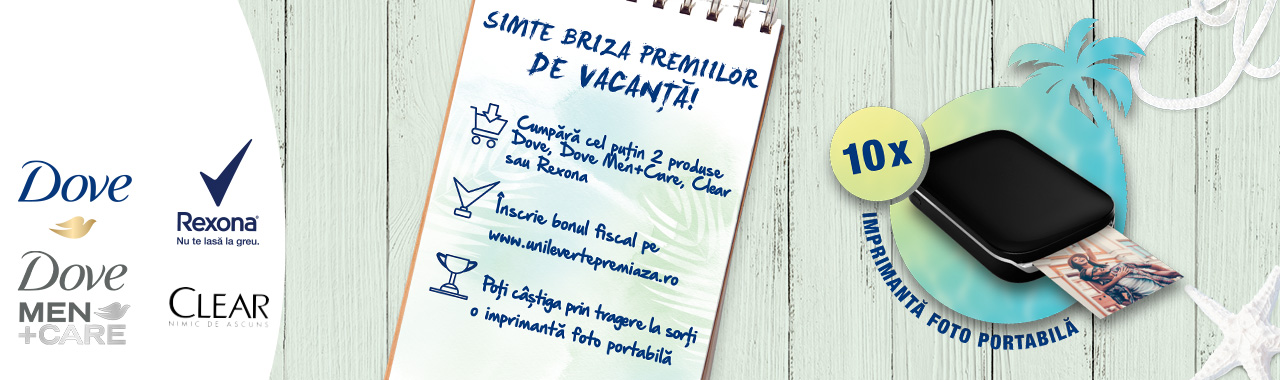 Dove
Rexona®
Nu te lasă la greu.
Dove
MEN
+CARE
CLEAR
NIMIC DE ASCUNS
SIMTE BRIZA PREMIILOR
DE VACANȚĂ!
Cumpără cel puțin 2 produse
Dove, Dove Men+Care, Clear
sau Rexona
Înscrie bonul fiscal pe
www.unilevertepremiaza.ro
Poți câștiga prin tragere la sorți
o imprimantă foto portabilă
10x
IMPRIMANTĂ FOTO PORTABILĂ